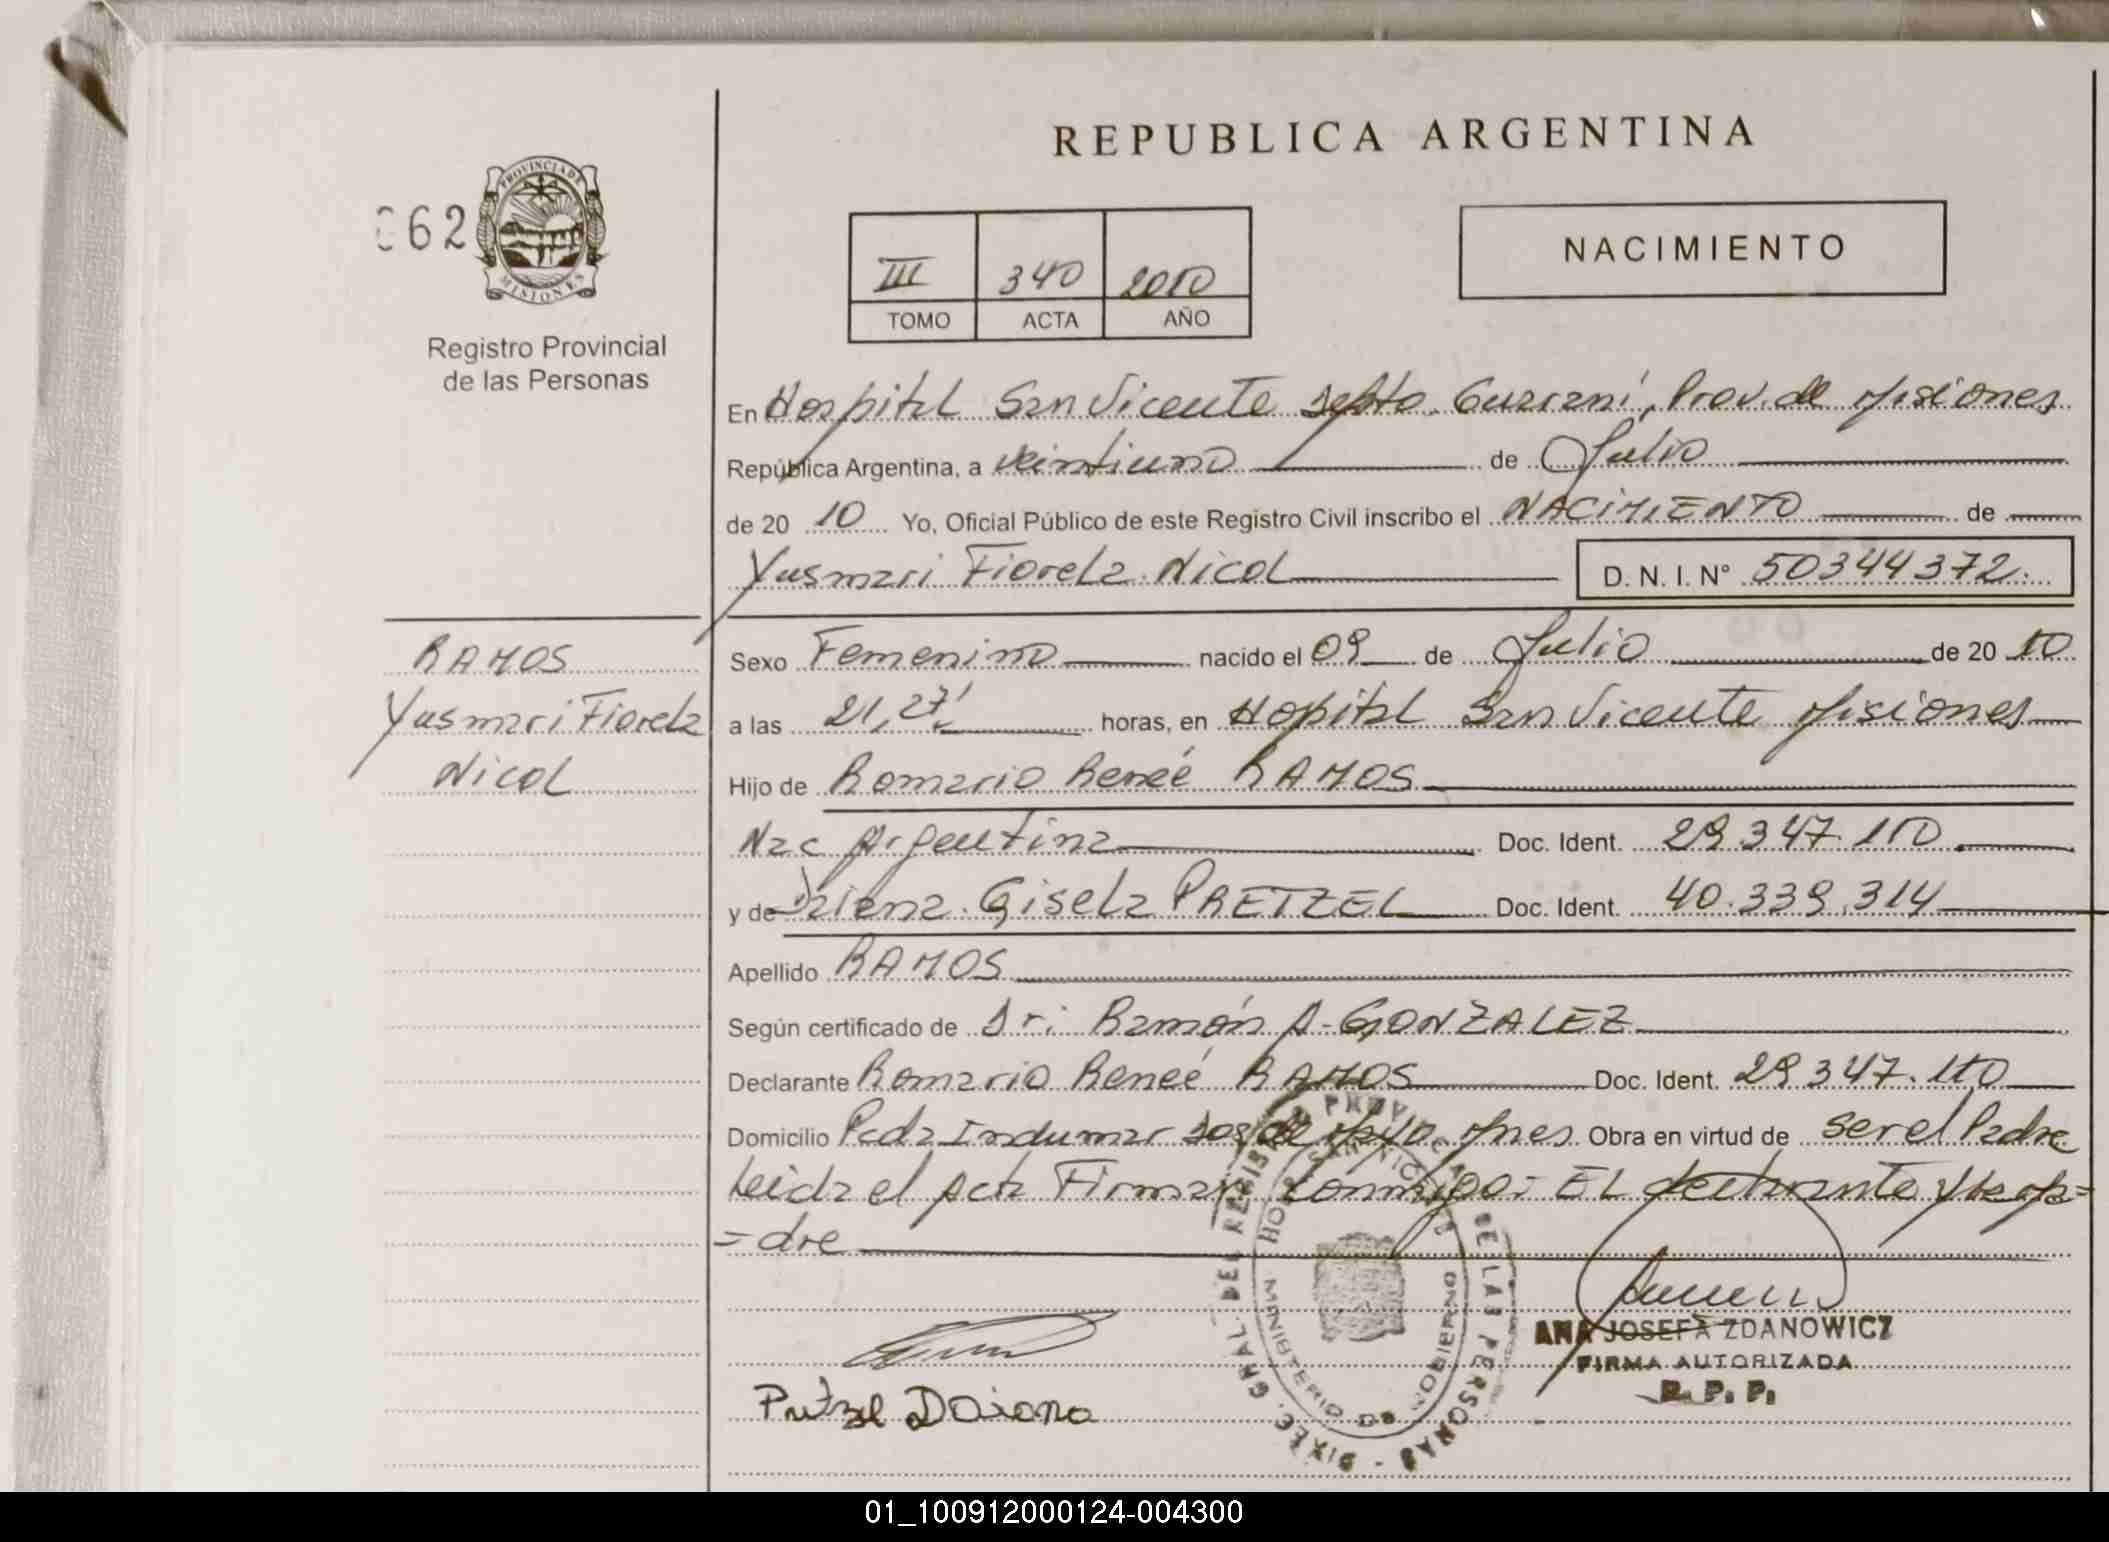 REPUBLICA ARGENTINA
062
PROVINCIA DE
MISIONES
Registro Provincial
de las Personas
III 340 2010
TOMO ACTA AÑO
NACIMIENTO
En Hospital San Vicente Depto. Guaraní, Prov. de Misiones
República Argentina, a veintiuno de Julio
de 20 10 Yo, Oficial Público de este Registro Civil inscribo el NACIMIENTO de
Yasmari Fiorela Nicol D. N. I. N° 50344372.
RAMOS
Yasmari Fiorela
Nicol
Sexo Femenino nacido el 09 de Julio de 20 10
a las 21,27' horas, en Hopital San Vicente Misiones
Hijo de Romario Reneé RAMOS
Nac Argentina Doc. Ident. 29.347.110
y de Daiana Gisela PRETZEL Doc. Ident. 40.339.314
Apellido RAMOS
Según certificado de Dr: Ramón A. GONZALEZ
Declarante Romario Reneé RAMOS Doc. Ident. 29347.110
Domicilio Pcda Indumar Dos de Mayo Mnes Obra en virtud de ser el Padre
Leida el Acta Firman Conmigo: EL declarante y la Ma=
=dre
DIREC. GRAL. DEL REGISTRO PROVINCIAL DE LAS PERSONAS
MINISTERIO DE GOBIERNO
ANA JOSEFA ZDANOWICZ
FIRMA AUTORIZADA
R. P. P.
Daiana
01_100912000124-004300